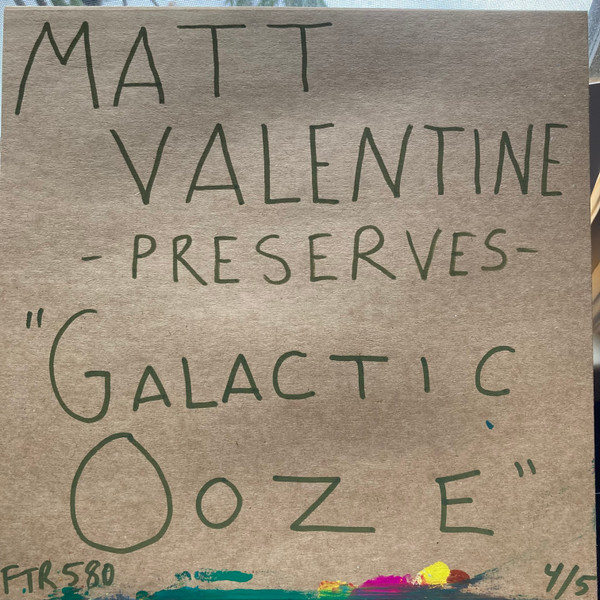 MATT
VALENTINE
- PRESERVES -
"GALACTIC
OOZE"
FTR 580 4/5